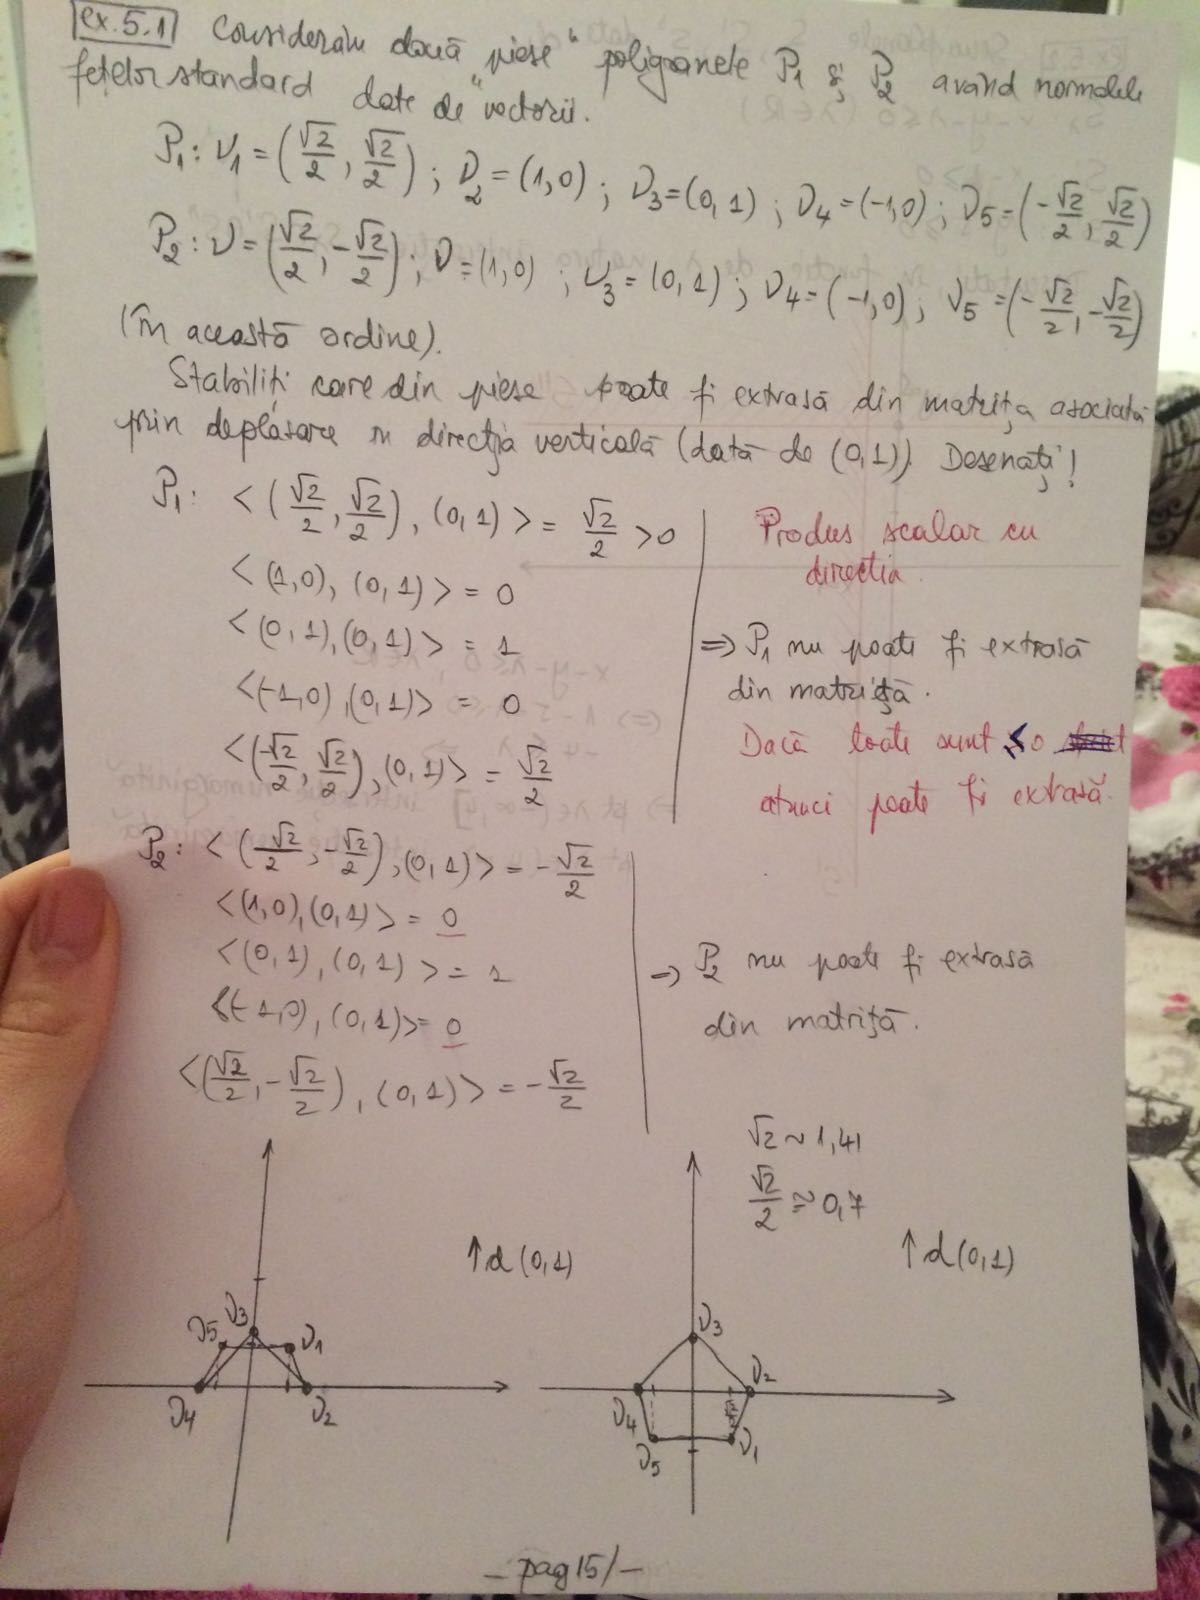 ex. 5.1 Considerăm două "piese" poligonale P₁ și P₂ având normalele
fețelor standard date de vectorii.
P₁: ν₁ = (√2/2, √2/2); ν₂ = (1,0); ν₃ = (0,1); ν₄ = (-1,0); ν₅ = (-√2/2, √2/2)
P₂: ν = (√2/2, -√2/2); ν = (1,0); ν₃ = (0,1); ν₄ = (-1,0); ν₅ = (-√2/2, -√2/2)
(în această ordine).
Stabiliți care din piese poate fi extrasă din matrița asociată
prin deplasare în direcția verticală (dată de (0,1)). Desenați!
P₁: <(√2/2, √2/2), (0,1)> = √2/2 > 0
<(1,0), (0,1)> = 0
<(0,1), (0,1)> = 1
<(-1,0), (0,1)> = 0
<(-√2/2, √2/2), (0,1)> = √2/2
Produs scalar cu
direcția.
=> P₁ nu poate fi extrasă
din matriță.
Dacă toate sunt ≤0
atunci poate fi extrasă.
P₂: <(-√2/2, -√2/2), (0,1)> = -√2/2
<(1,0), (0,1)> = 0
<(0,1), (0,1)> = 1
<(-1,0), (0,1)> = 0
<(√2/2, -√2/2), (0,1)> = -√2/2
=> P₂ nu poate fi extrasă
din matriță.
√2 ~ 1,41
√2/2 ≈ 0,7
↑d(0,1)
ν₃
ν₅ ν₁
ν₄ ν₂
↑d(0,1)
ν₃
ν₂
ν₄
ν₅ ν₁
- pag 15/-